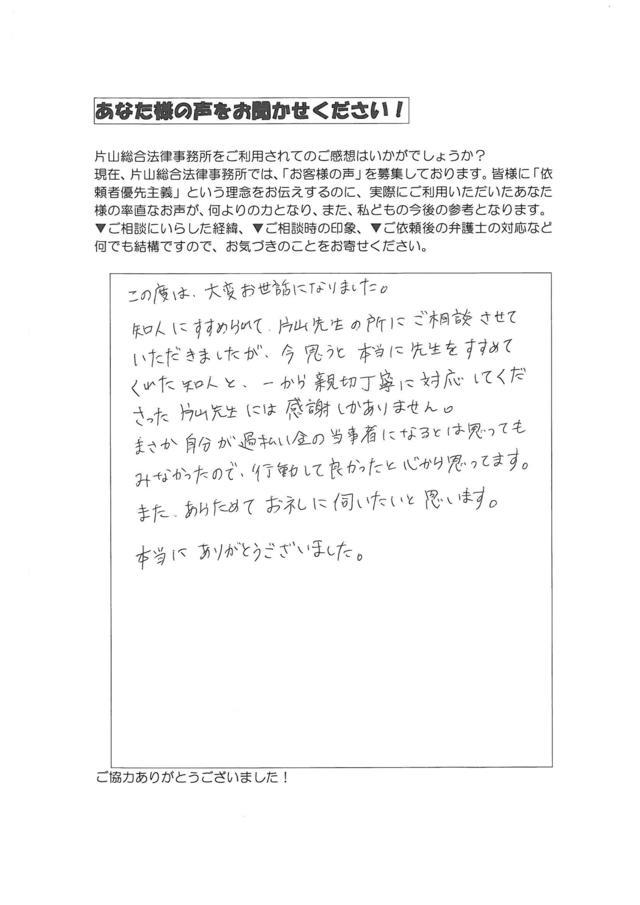 あなた様の声をお聞かせください！
片山総合法律事務所をご利用されてのご感想はいかがでしょうか？
現在、片山総合法律事務所では、「お客様の声」を募集しております。皆様に「依
頼者優先主義」という理念をお伝えするのに、実際にご利用いただいたあなた
様の率直なお声が、何よりの力となり、また、私どもの今後の参考となります。
▼ご相談にいらした経緯、▼ご相談時の印象、▼ご依頼後の弁護士の対応など
何でも結構ですので、お気づきのことをお寄せください。
この度は、大変お世話になりました。
知人にすすめられて、片山先生の所にご相談させて
いただきましたが、今思うと本当に先生をすすめて
くれた知人と、一から親切丁寧に対応してくだ
さった片山先生には感謝しかありません。
まさか自分が過払い金の当事者になるとは思っても
みなかったので、行動して良かったと心から思ってます。
また、あらためてお礼に伺いたいと思います。
本当にありがとうございました。
ご協力ありがとうございました！